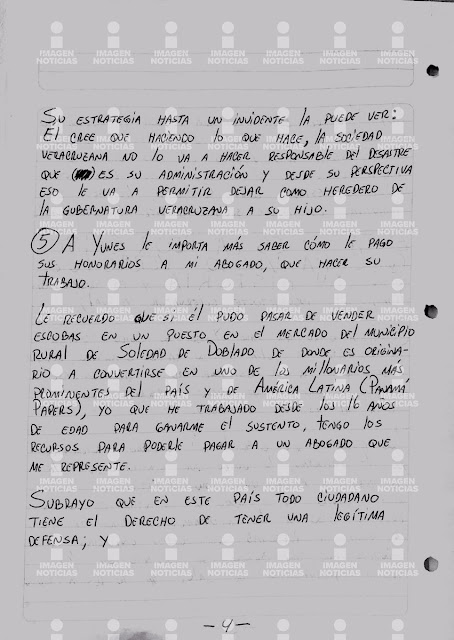 SU ESTRATEGIA HASTA UN INVIDENTE LA PUEDE VER:
EL CREE QUE HACIENDO LO QUE HACE, LA SOCIEDAD
VERACRUZANA NO LO VA A HACER RESPONSABLE DEL DESASTRE
QUE ES SU ADMINISTRACIÓN Y DESDE SU PERSPECTIVA
ESO LE VA A PERMITIR DEJAR COMO HEREDERO DE
LA GUBERNATURA VERACRUZANA A SU HIJO.
5 A YUNES LE IMPORTA MÁS SABER CÓMO LE PAGO
SUS HONORARIOS A MI ABOGADO, QUE HACER SU
TRABAJO.
LE RECUERDO QUE SI ÉL PUDO PASAR DE VENDER
ESCOBAS EN UN PUESTO EN EL MERCADO DEL MUNICIPIO
RURAL DE SOLEDAD DE DOBLADO DE DONDE ES ORIGINA-
RIO A CONVERTIRSE EN UNO DE LOS MILLONARIOS MÁS
PROMINENTES DEL PAÍS Y DE AMÉRICA LATINA (PANAMÁ
PAPERS), YO QUE HE TRABAJADO DESDE LOS 16 AÑOS
DE EDAD PARA GANARME EL SUSTENTO, TENGO LOS
RECURSOS PARA PODERLE PAGAR A UN ABOGADO QUE
ME REPRESENTE.
SUBRAYO QUE EN ESTE PAÍS TODO CIUDADANO
TIENE EL DERECHO DE TENER UNA LEGÍTIMA
DEFENSA; Y
- 4 -
IMAGEN NOTICIAS